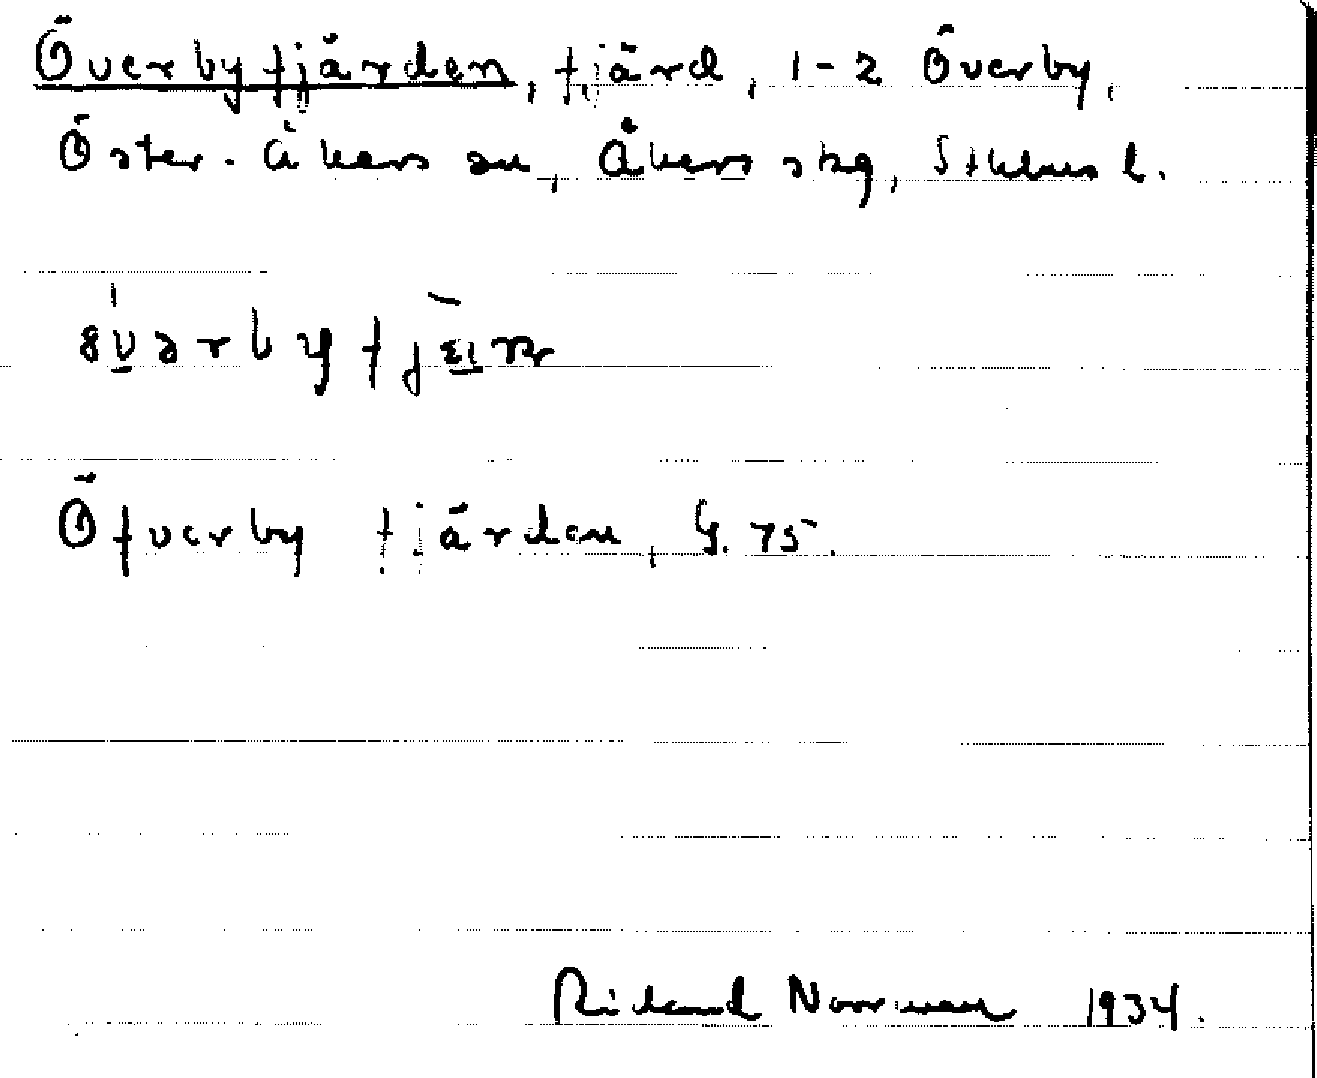 Överbyfjärden, fjärd, 1-2 Överby,
Öster-Åkers sn, Åkers skg, Sthlms l.
Öfverby fjärden, G. 75.
Richard Norrman 1934.